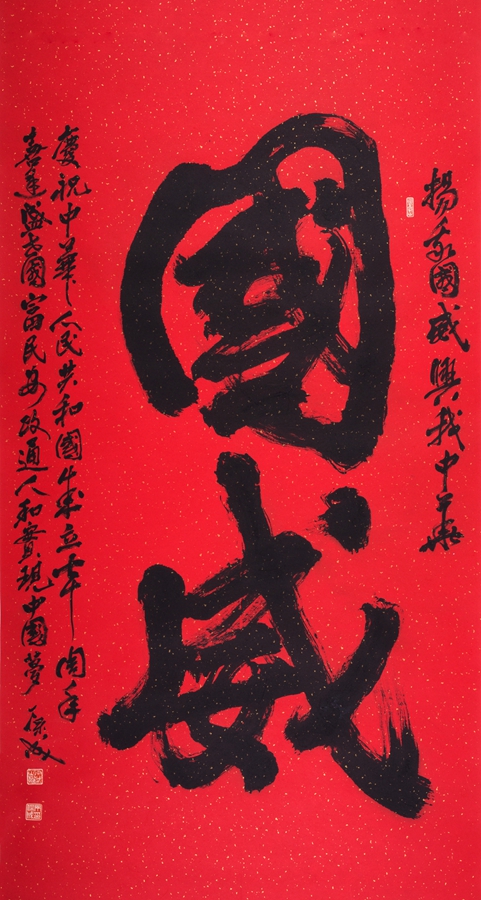 揚我國威興我中華
國威
慶祝中華人民共和國成立七十周年
喜逢盛世國富民安政通人和實現中國夢